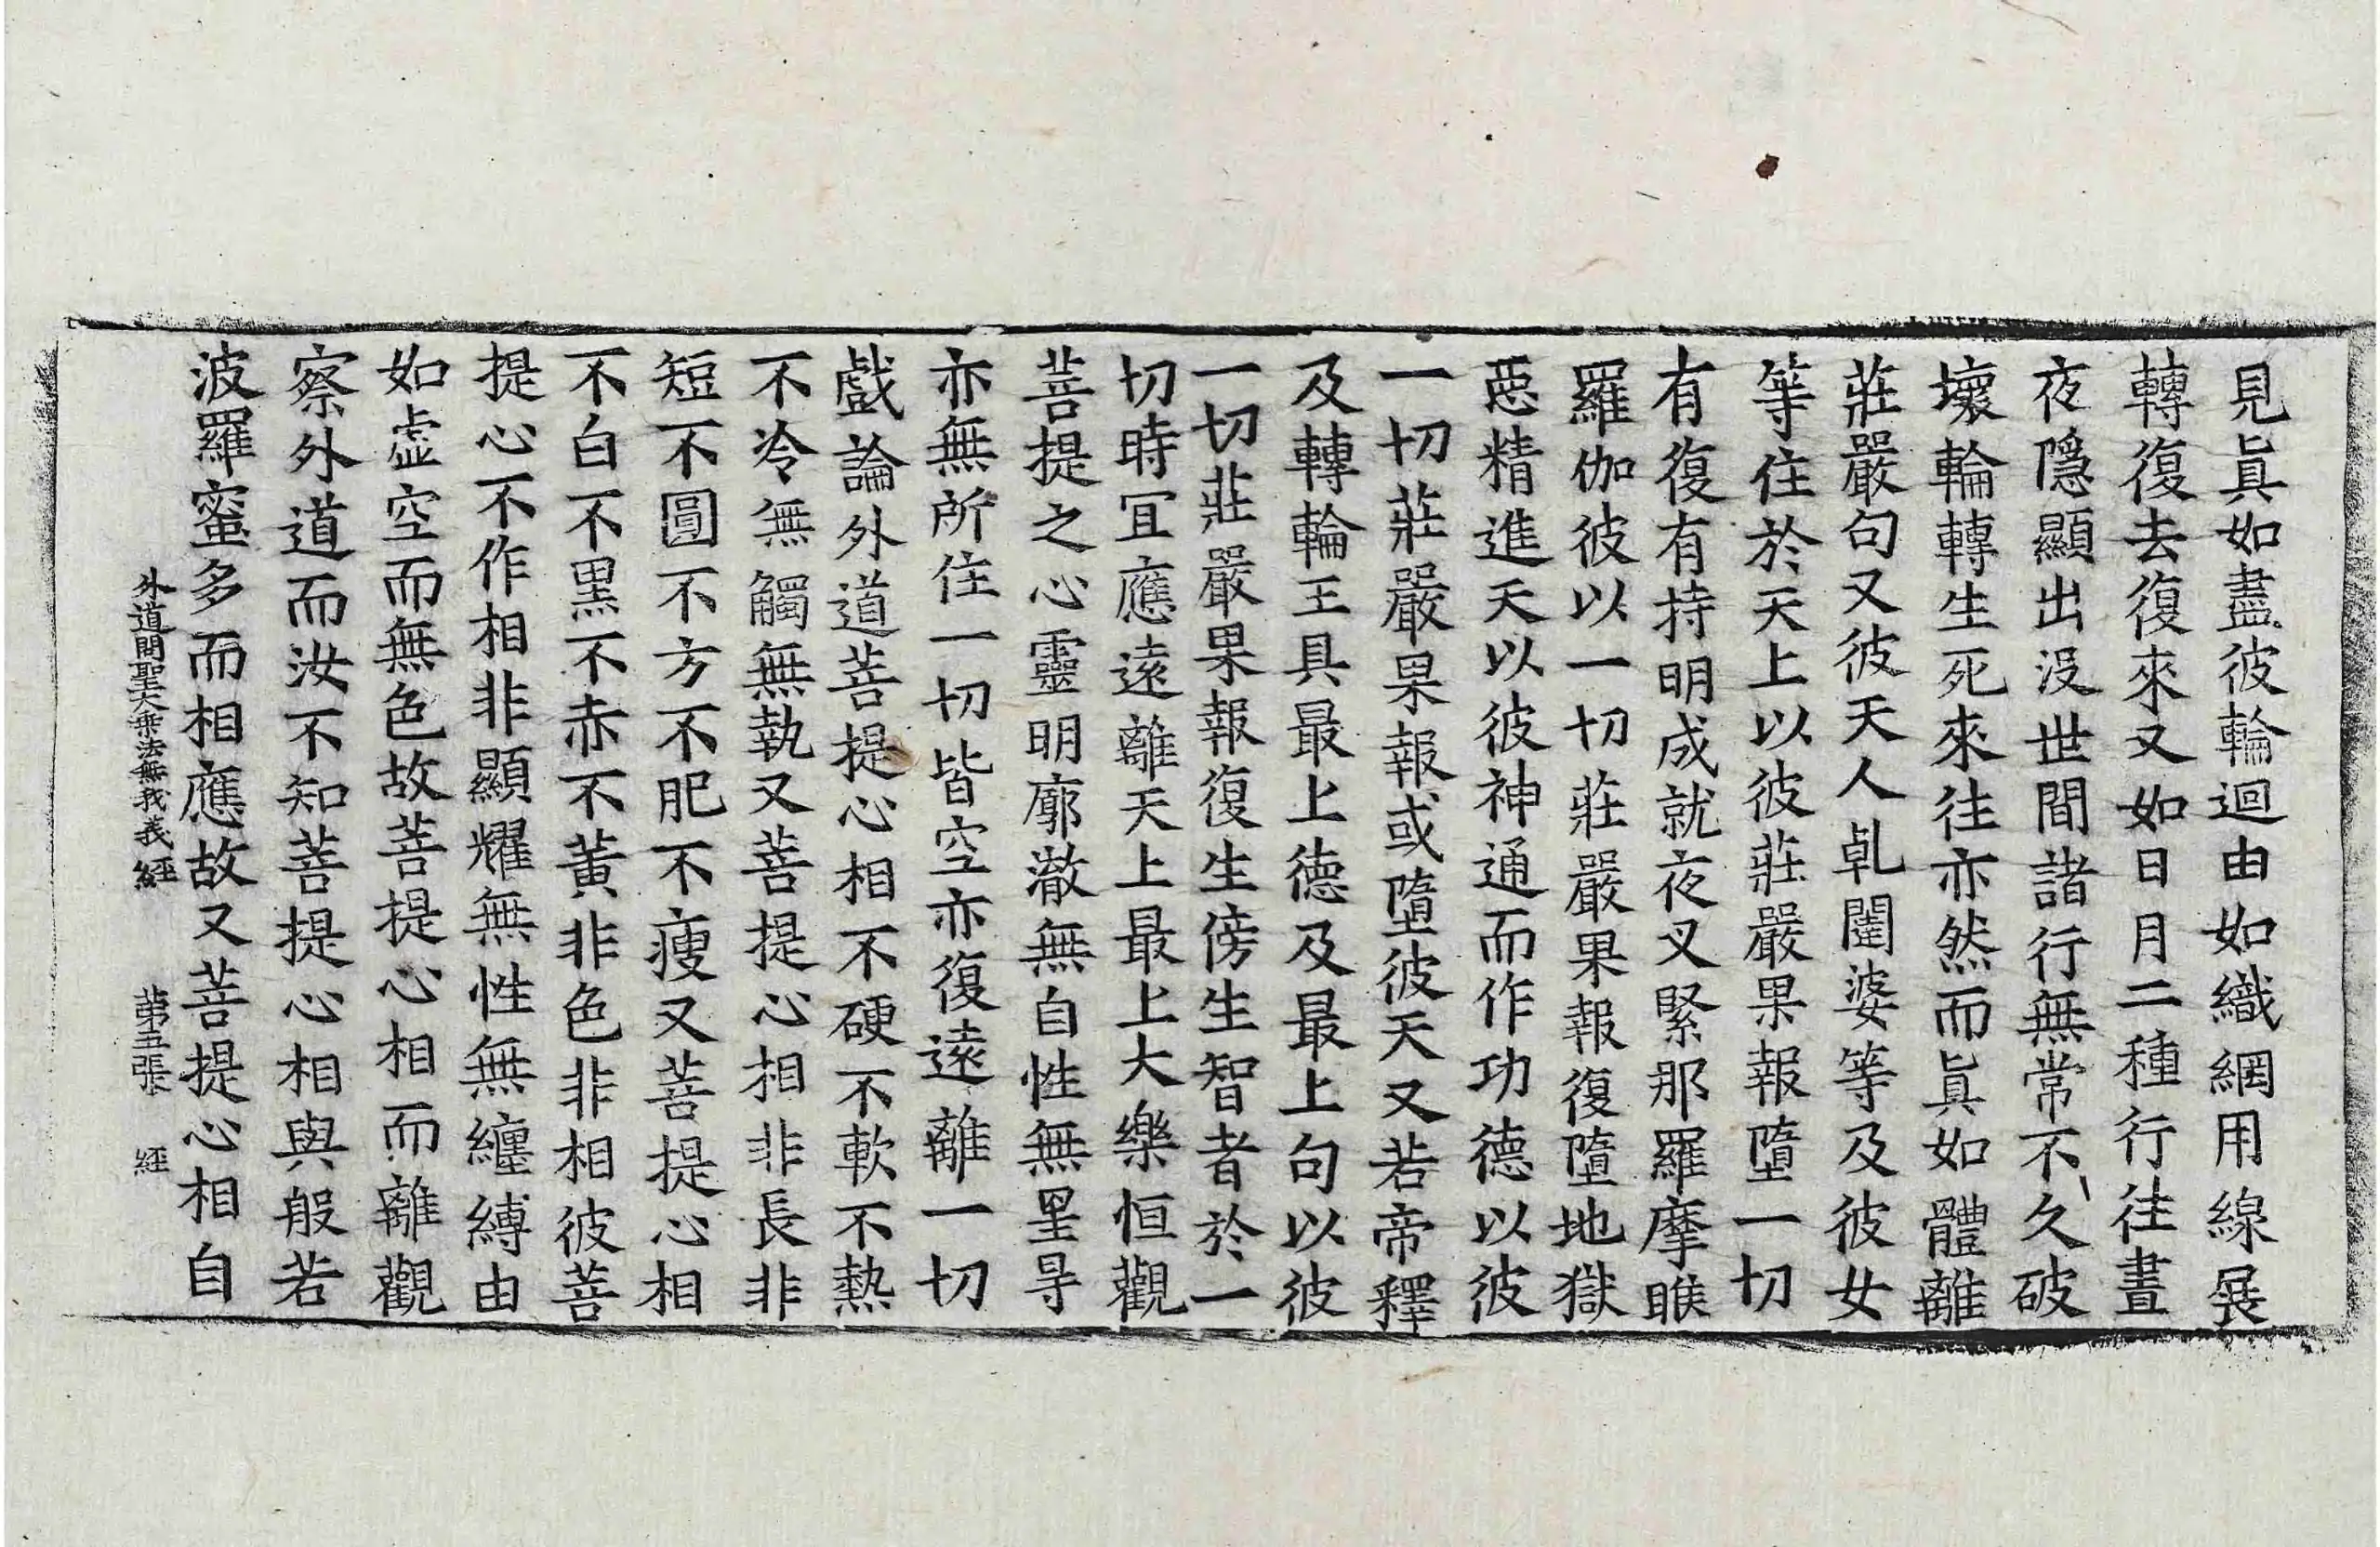 見眞如盡彼輪迴由如織網用線展
轉復去復來又如日月二種行往晝
夜隱顯出沒世間諸行無常不久破
壞輪轉生死來往亦然而眞如體離
莊嚴句又彼天人乹闥婆等及彼女
等住於天上以彼莊嚴果報墮一切
有復有持明成就夜叉緊那羅摩睺
羅伽彼以一切莊嚴果報復墮地獄
惡精進天以彼神通而作功德以彼
一切莊嚴果報或墮彼天又若帝釋
及轉輪王具最上德及最上句以彼
一切莊嚴果報復生傍生智者於一
切時冝應遠離天上最上大樂恒觀
菩提之心靈明廓澈無自性無罣㝵
亦無所住一切皆空亦復遠離一切
戲論外道菩提心相不硬不軟不熱
不冷無觸無執又菩提心相非長非
短不圓不方不肥不瘦又菩提心相
不白不黑不赤不黃非色非相彼菩
提心不作相非顯耀無性無纏縛由
如虛空而無色故菩提心相而離觀
察外道而汝不知菩提心相與般若
波羅蜜多而相應故又菩提心相自
外道問聖大乘法無我義經 第五張 經